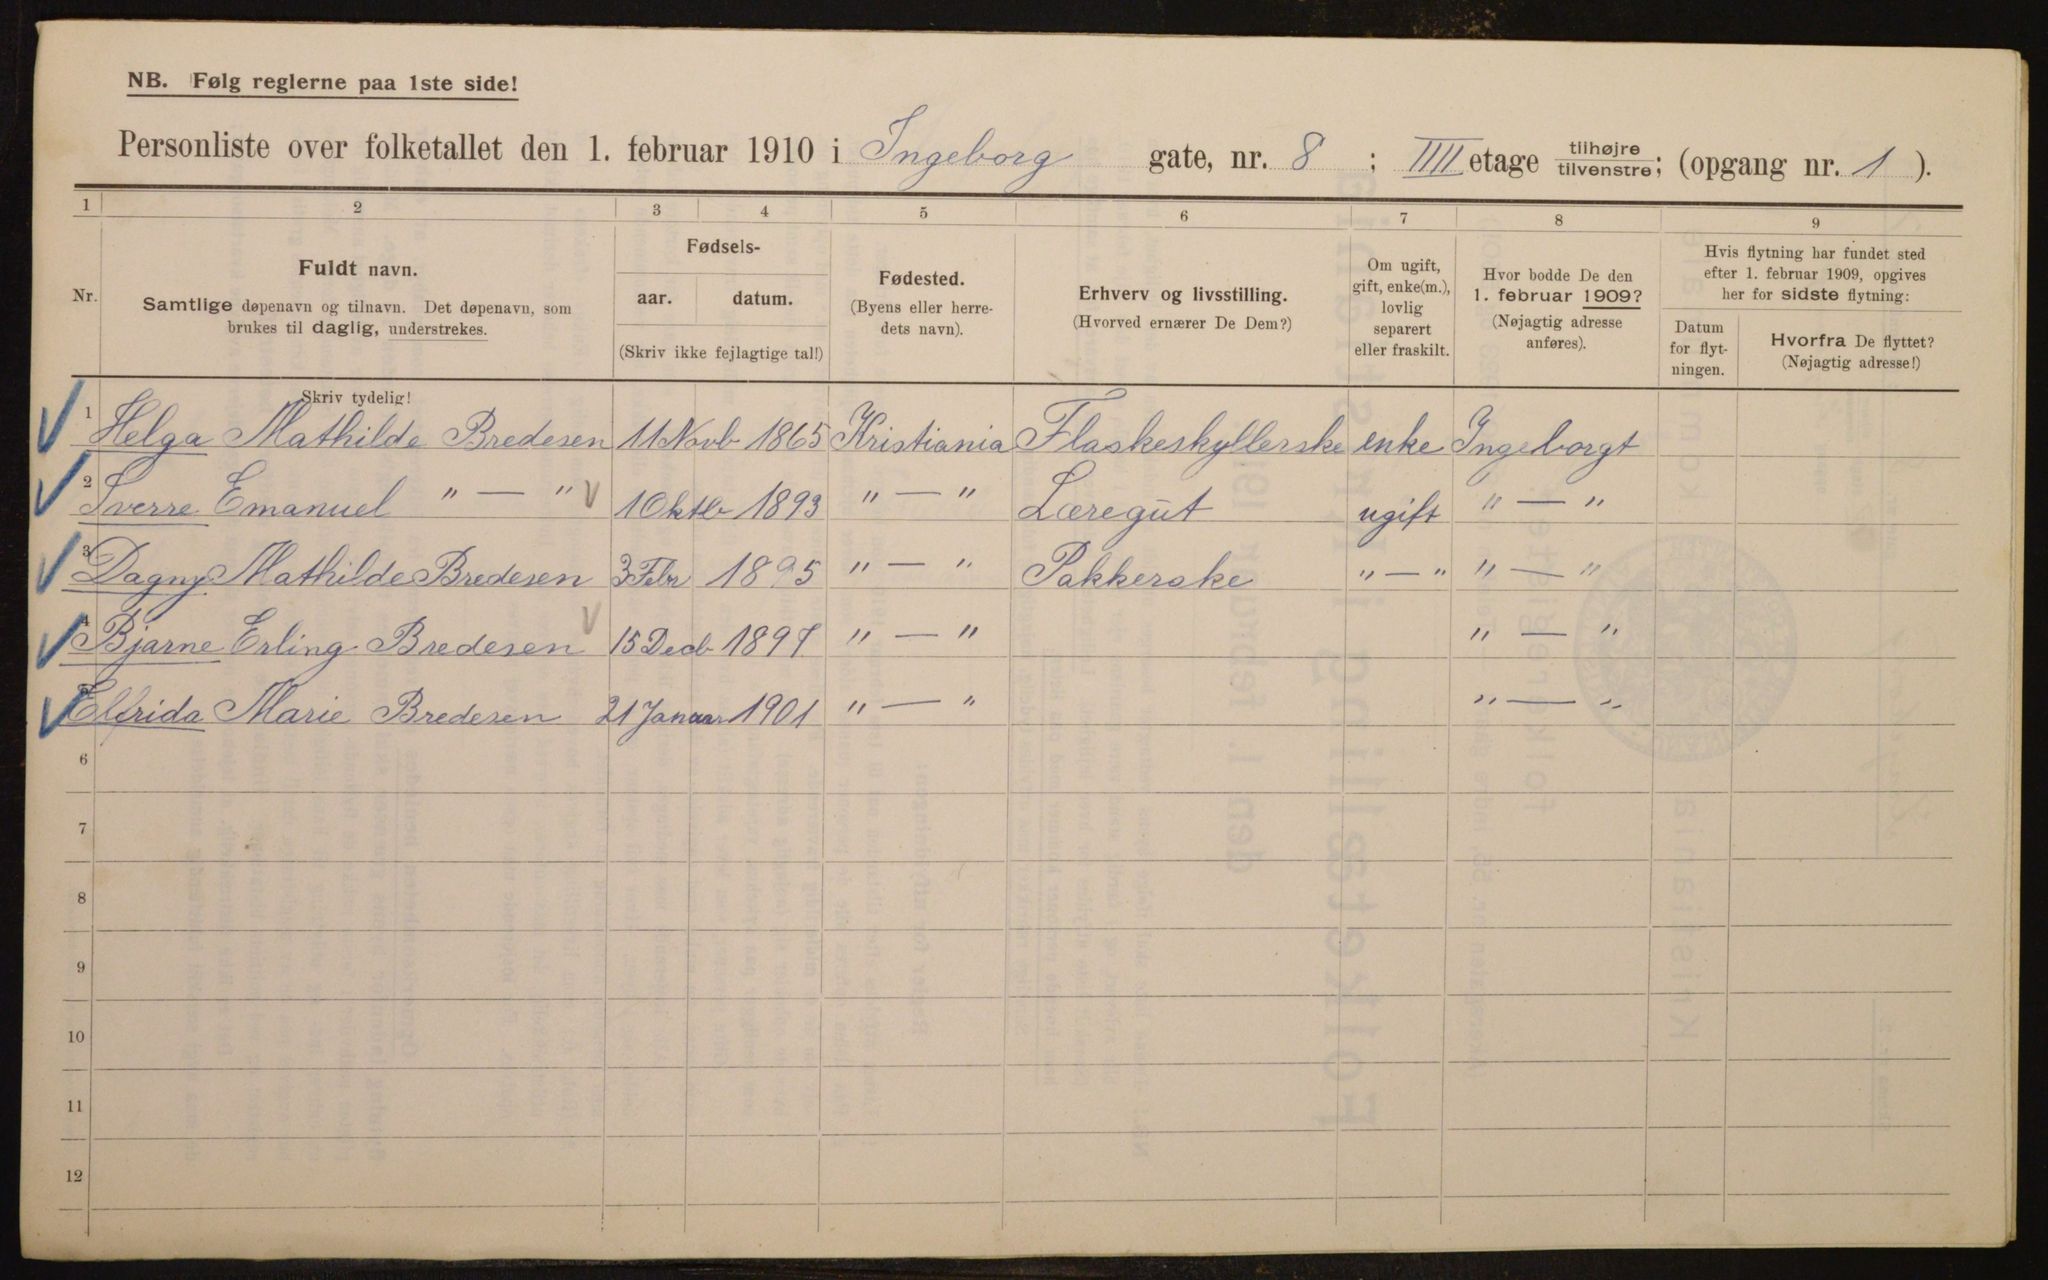 NB. Følg reglerne paa 1ste side!
Personliste over folketallet den 1. februar 1910 i Ingeborg gate, nr. 8 ; IIII etage tilhøjre/tilvenstre; (opgang nr. 1 ).
1 2 3 4 5 6 7 8 9
Nr.
Fuldt navn.
Samtlige døpenavn og tilnavn. Det døpenavn, som
brukes til daglig, understrekes.
Skriv tydelig!
Fødsels-
aar. datum.
(Skriv ikke fejlagtige tal!)
Fødested.
(Byens eller herre-
dets navn).
Erhverv og livsstilling.
(Hvorved ernærer De Dem?)
Om ugift,
gift, enke(m.),
lovlig
separert
eller fraskilt.
Hvor bodde De den
1. februar 1909?
(Nøjagtig adresse
anføres).
Hvis flytning har fundet sted
efter 1. februar 1909, opgives
her for sidste flytning:
Datum
for flyt-
ningen.
Hvorfra De flyttet?
(Nøjagtig adresse!)
1 Helga Mathilde Bredesen 11 Novb 1865 Kristiania Flaskeskyllerske enke Ingeborgt
2 Sverre Emanuel " — " 1 Oktb 1893 " — " Læregut ugift " — "
3 Dagny Mathilde Bredesen 3 Febr 1895 " — " Pakkerske " — " " — "
4 Bjarne Erling Bredesen 15 Decb 1897 " — " " — "
5 Elfrida Marie Bredesen 21 Januar 1901 " — " " — "
6
7
8
9
10
11
12